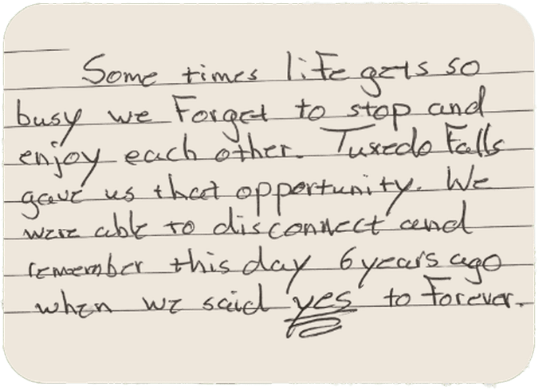 Some times life gets so
busy we Forget to stop and
enjoy each other. Tuxedo Falls
gave us that opportunity. We
were able to disconnect and
remember this day 6 years ago
when we said yes to Forever.